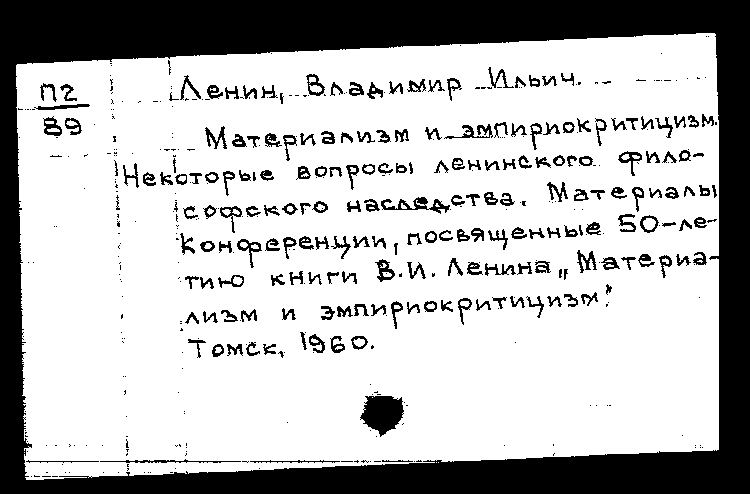 П2
89
Ленин, Владимир Ильич.
Материализм и эмпириокритицизм.
Некоторые вопросы ленинского фило-
софского наследства. Материалы
конференции, посвященные 50-ле-
тию книги В.И. Ленина „Материа-
лизм и эмпириокритицизм".
Томск, 1960.